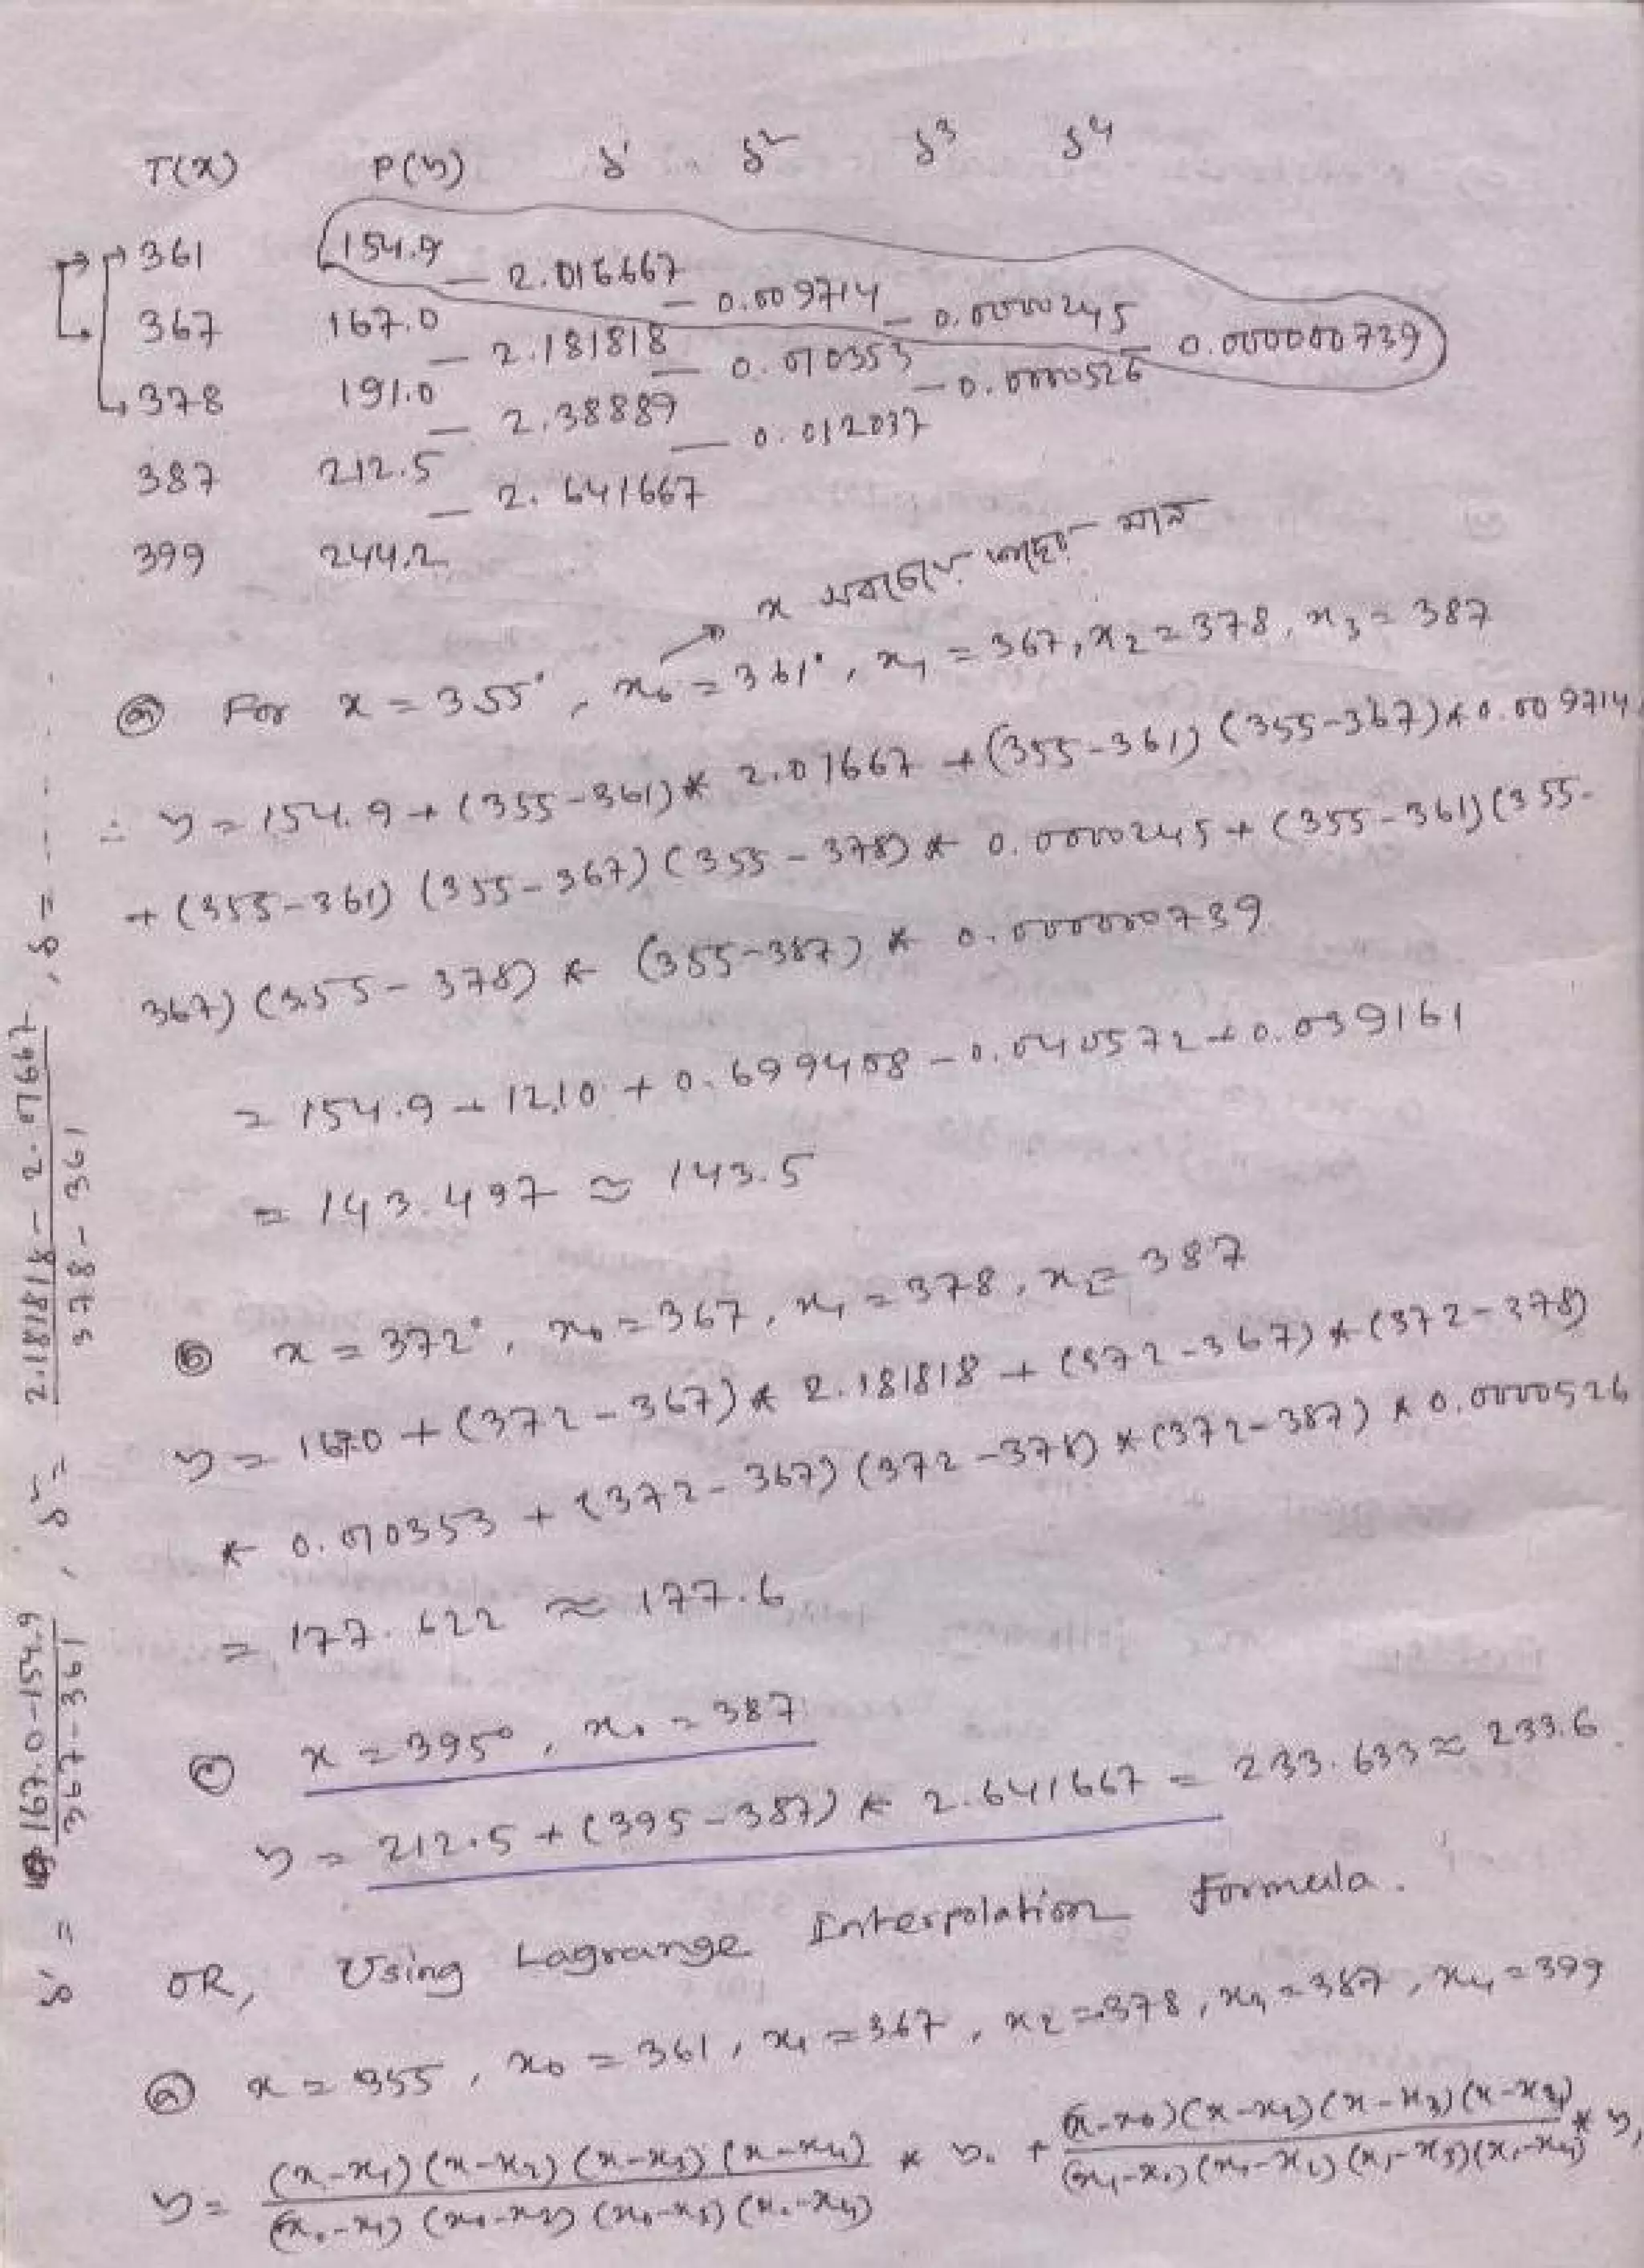 T(x) P(y) δ' δ² δ³ δ⁴
361 154.9
— 2.016667
— 0.009714
— 0.0000245
— 0.000000739
367 167.0
— 2.181818
— 0.010353
— 0.0000526
378 191.0
— 2.38889
— 0.012037
387 212.5
— 2.641667
399 244.2
x সবচেয়ে কাছের মান
ⓐ For x = 355°, x₀ = 361°, x₁ = 367, x₂ = 378, x₃ = 387
∴ y = 154.9 + (355-361)* 2.01667 + (355-361) (355-367)* 0.009714
+ (355-361) (355-367) (355-378) * 0.0000245 + (355-361) (355-
367) (355-378) * (355-387) * 0.000000739
= 154.9 - 12.10 + 0.699408 - 0.040572 + 0.039161
= 143.497 ≈ 143.5
ⓑ x = 372°, x₀ = 367, x₁ = 378, x₂ = 387
y = 167.0 + (372-367)* 2.181818 + (372-367) * (372-378)
* 0.010353 + (372-367) (372-378) * (372-387) * 0.0000526
= 177.622 ≈ 177.6
ⓒ x = 395°, x₀ = 387
y = 212.5 + (395-387) * 2.641667 = 233.633 ≈ 233.6
OR, Using Lagrange Interpolation Formula.
ⓐ x = 355, x₀ = 361, x₁ = 367, x₂ = 378, x₃ = 387, x₄ = 399
y = (x-x₁) (x-x₂) (x-x₃) (x-x₄) * y₀ + (x-x₀) (x-x₂) (x-x₃) (x-x₄) * y₁
(x₀-x₁) (x₀-x₂) (x₀-x₃) (x₀-x₄) (x₁-x₀) (x₁-x₂) (x₁-x₃) (x₁-x₄)
δ' = 167.0-154.9 , δ² = 2.181818 - 2.01667 , δ = - - - - -
367-361 378-361